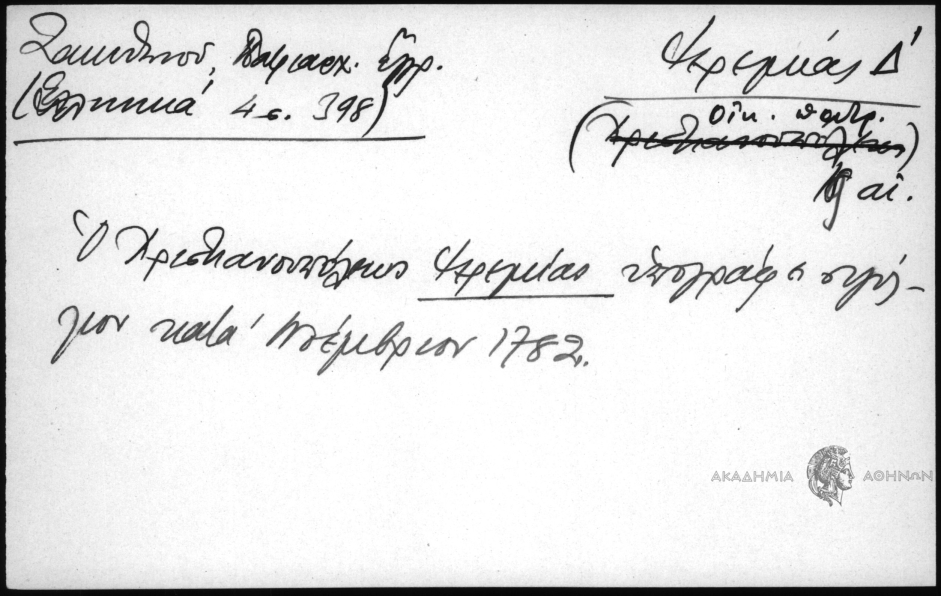 Ζακυθηνοῦ, Πατριαρχ. ἔγγρ.
(Ἑλληνικά 4 σ. 398)
Ἱερεμίας Δ'
Οἰκ. πατρ.
(Χριστιανουπόλεως)
αἰ.
Ὁ Χριστιανουπόλεως Ἱερεμίας ὑπογράφει σιγίλ-
λιον κατά Νοέμβριον 1782.
ΑΚΑΔΗΜΙΑ ΑΘΗΝΩΝ